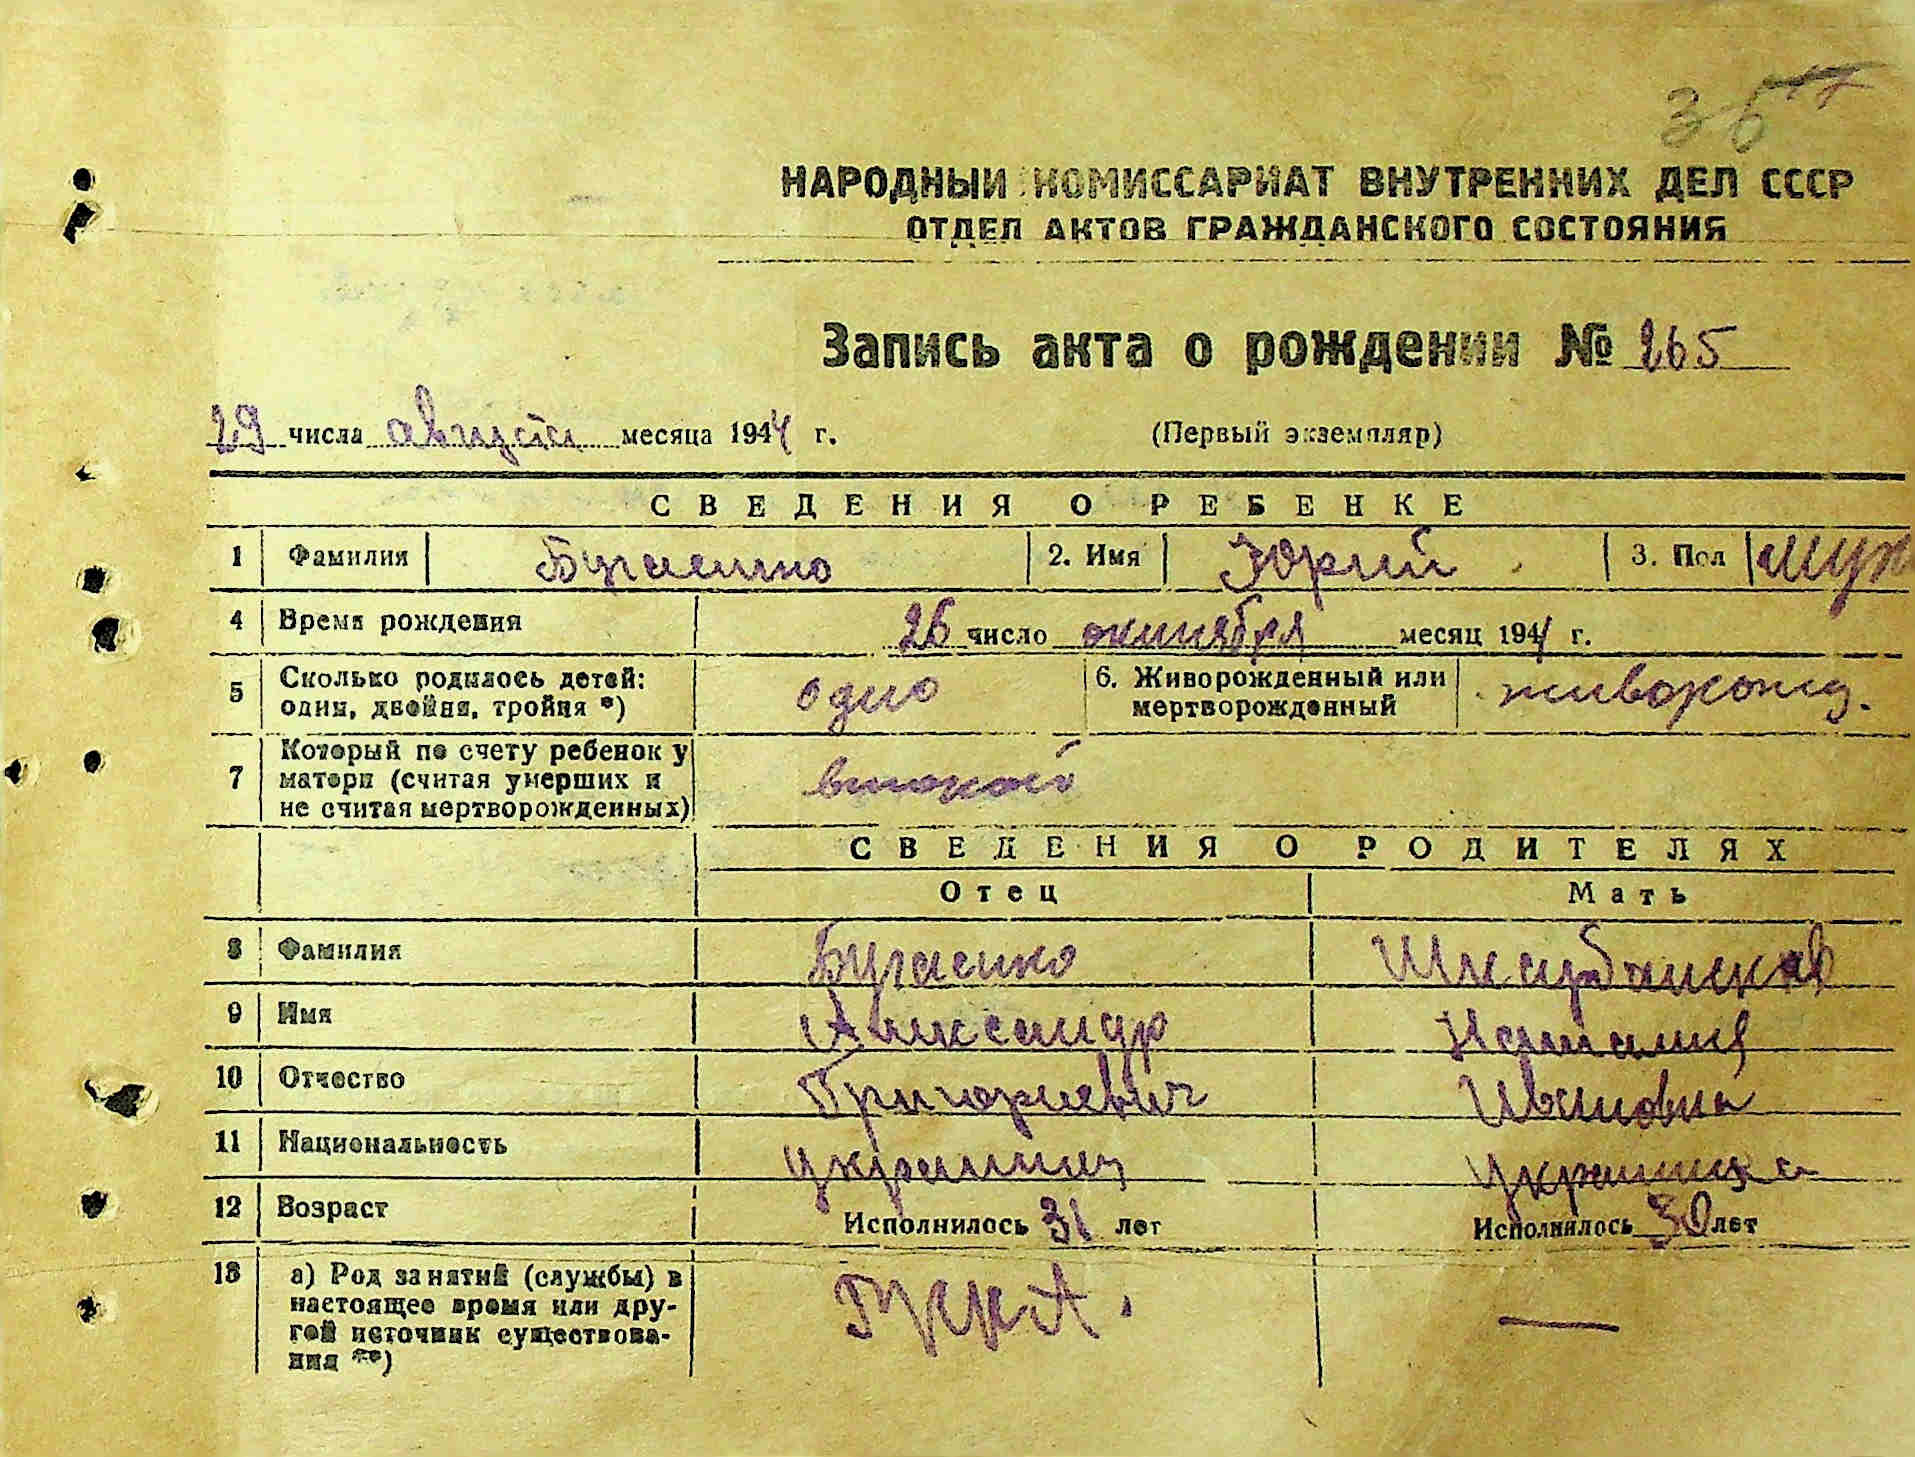 НАРОДНЫЙ КОМИССАРИАТ ВНУТРЕННИХ ДЕЛ СССР
ОТДЕЛ АКТОВ ГРАЖДАНСКОГО СОСТОЯНИЯ
Запись акта о рождении № 265
29 числа августа месяца 1944 г. (Первый экземпляр)
СВЕДЕНИЯ О РЕБЕНКЕ
1 Фамилия Бугаенко 2. Имя Юрий 3. Пол муж
4 Время рождения 26 число октября месяц 1941 г.
5 Сколько родилось детей: одно 6. Живорожденный или
один, двойня, тройня *) мертворожденный
7 Который по счету ребенок у
матери (считая умерших и второй
не считая мертворожденных)
СВЕДЕНИЯ О РОДИТЕЛЯХ
Отец Мать
8 Фамилия Бугаенко
9 Имя Александр Наталия
10 Отчество Григориевич Ивановна
11 Национальность украинец украинка
12 Возраст Исполнилось 31 лет Исполнилось 30 лет
13 а) Род занятий (службы) в
настоящее время или дру-
гой источник существова-
ния **)